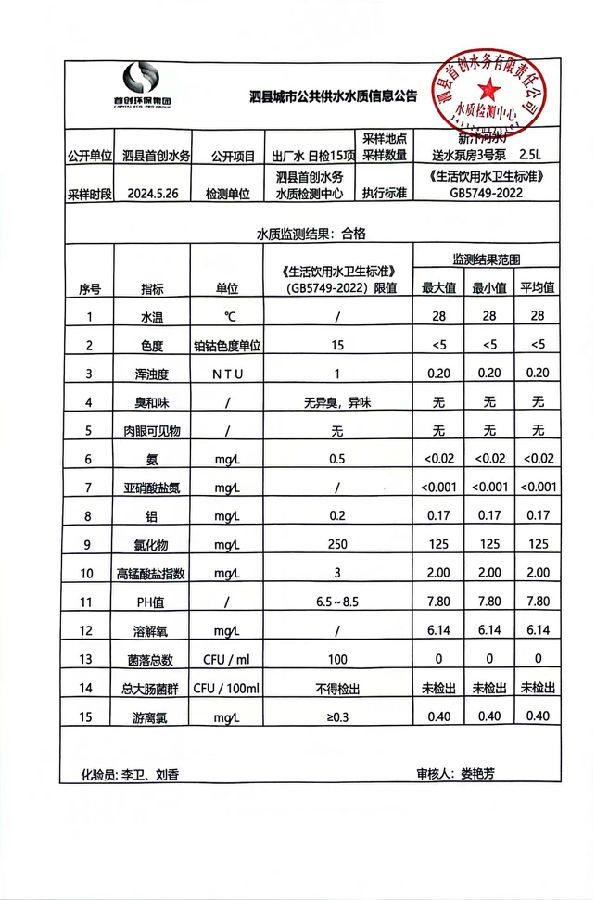 首创环保集团
泗县城市公共供水水质信息公告
泗县首创水务有限责任公司
水质检测中心
公开单位 泗县首创水务 公开项目 出厂水 日检15项 采样地点 采样数量 送水泵房3号泵 2.5L
采样时段 2024.5.26 检测单位 泗县首创水务 水质检测中心 执行标准 《生活饮用水卫生标准》 GB5749-2022
水质监测结果：合格
序号 指标 单位 《生活饮用水卫生标准》（GB5749-2022）限值 监测结果范围
最大值 最小值 平均值
1 水温 ℃ / 28 28 28
2 色度 铂钴色度单位 15 <5 <5 <5
3 浑浊度 NTU 1 0.20 0.20 0.20
4 臭和味 / 无异臭，异味 无 无 无
5 肉眼可见物 / 无 无 无 无
6 氨 mg/L 0.5 <0.02 <0.02 <0.02
7 亚硝酸盐氮 mg/L / <0.001 <0.001 <0.001
8 铝 mg/L 0.2 0.17 0.17 0.17
9 氯化物 mg/L 250 125 125 125
10 高锰酸盐指数 mg/L 3 2.00 2.00 2.00
11 PH值 / 6.5~8.5 7.80 7.80 7.80
12 溶解氧 mg/L / 6.14 6.14 6.14
13 菌落总数 CFU / ml 100 0 0 0
14 总大肠菌群 CFU / 100ml 不得检出 未检出 未检出 未检出
15 游离氯 mg/L ≥0.3 0.40 0.40 0.40
化验员: 李卫、刘香 审核人：娄艳芳